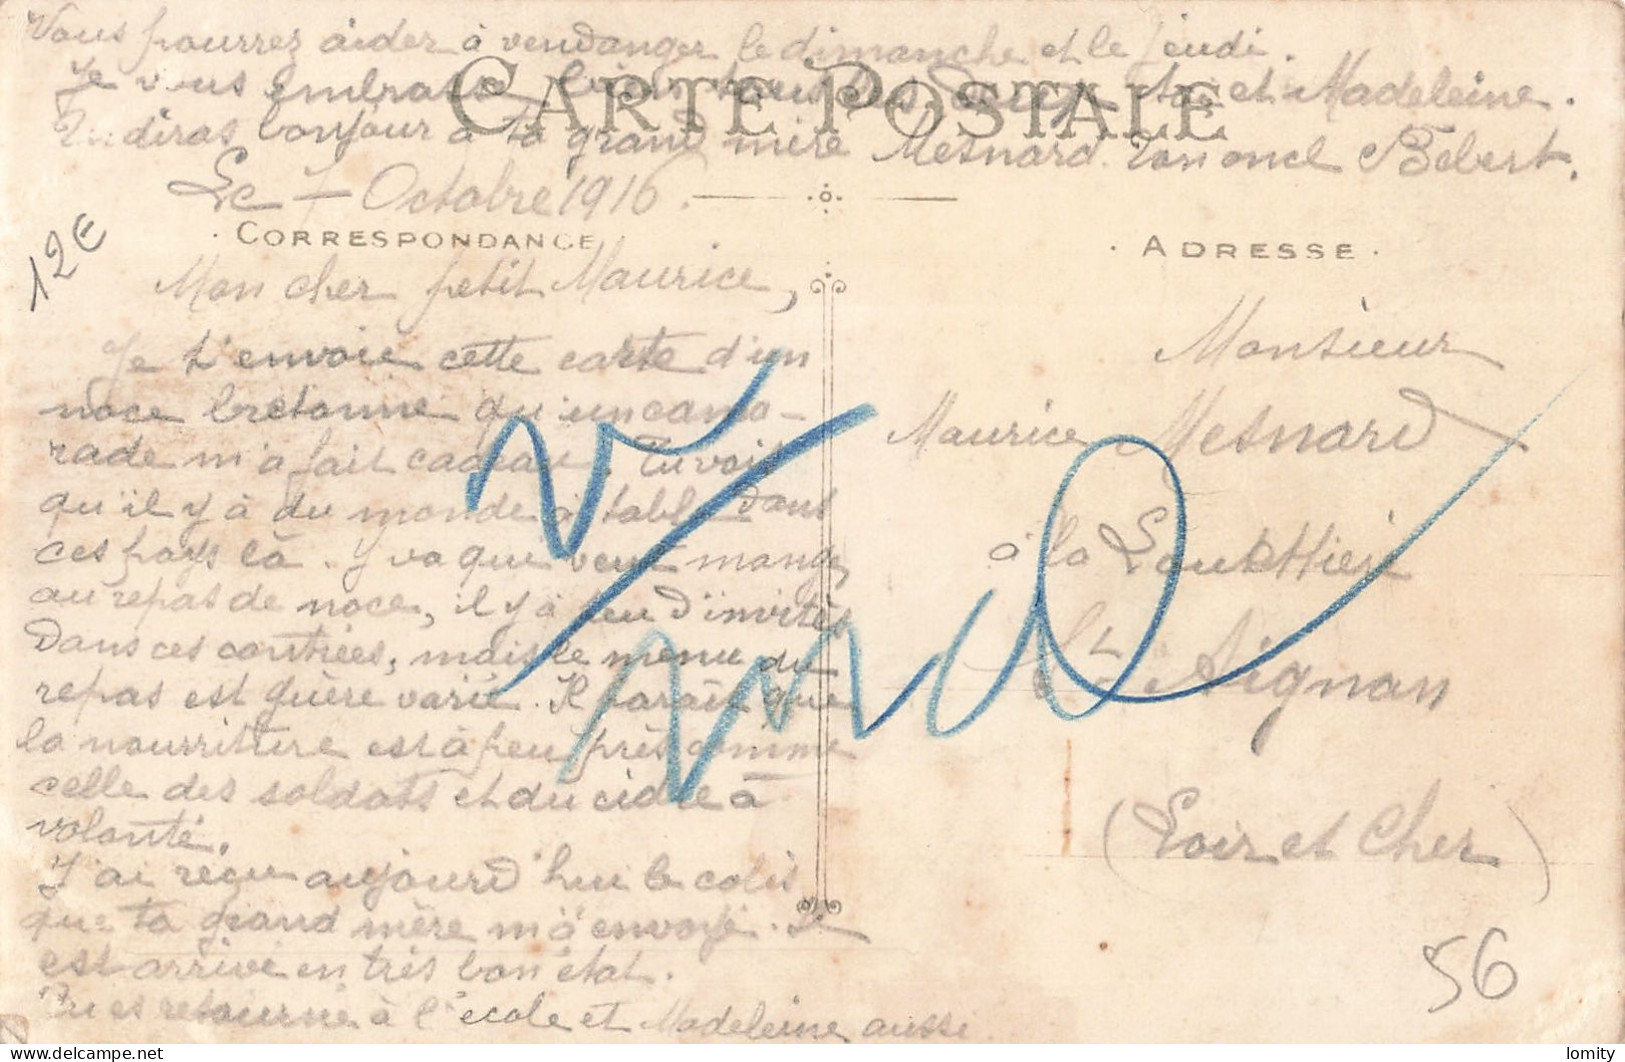 Vous pourrez aider à vendanger le dimanche et le jeudi.
Je vous embrasse bien tous les deux toi et Madeleine.
Tu diras bonjour à ta grand mère Mesnard. Ton oncl Bebert.
CARTE POSTALE
Le 7 Octobre 1916.
CORRESPONDANCE
12€
Mon cher petit Maurice,
Je t'envoie cette carte d'un
noce bretonne qu'un cama-
rade m'a fait cadeau. Tu vois
qu'il y à du monde à tabl dans
ces pays là. Y va qui veut mange
au repas de noce, il y à peu d'invités
dans ces contrées, mais le menu du
repas est guère varié. Il parait que
la nourriture est à peu près comme
celle des soldats et du cidre à
volonté.
J'ai reçu aujourd'hui le colis
que ta grand mère m'à envoyé. Il
est arrivé en très bon état.
Tu es retourné à l'école et Madeleine aussi
ADRESSE
Monsieur
Maurice Mesnard
à la
St Aignan
(Loir et Cher)
56
lomity